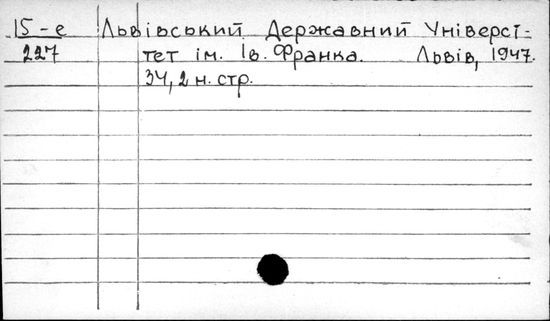 15-е Львівський Державний Універсі-
227 тет ім. Ів. Франка. Львів, 1947.
34, 2 н. стр.